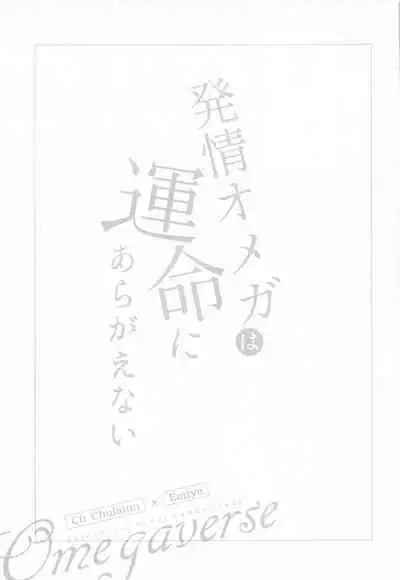 発情オメガは
運命に
あらがえない
Cú Chulainn × Emiya
Omegaverse